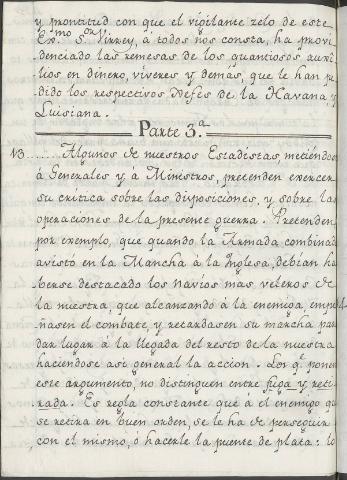 y prontitud con que el vigilante zelo de este
Ex.mo S.or Virrey, á todos nos consta, ha provi
denciado las remesas de los quantiosos auxi
lios en dinero, viveres y demas, que le han pe
dido los respectivos Gefes de la Havana y
Luisiana.
Parte 3.a
13 Algunos de nuestros Estadistas, metiendose
á Generales y á Ministros, pretenden exercer
su critica sobre las disposiciones, y sobre las
operaciones de la presente guerra. Pretenden
por exemplo, que quando la Armada combinada
avistó en la Mancha á la Inglesa, debían ha
berse destacado los navios mas veleros de
la nuestra, que alcanzando á la enemiga, empe
ñasen el combate, y retardasen su marcha para
dar lugar á la llegada del resto de la nuestra
haciendose asi general la accion. Los q.e ponen
este argumento, no distinguen entre fuga y reti
rada. Es regla constante que á el enemigo que
se retira en buen orden, se le ha de perseguir
con el mismo, ó hacerle la puente de plata: lo